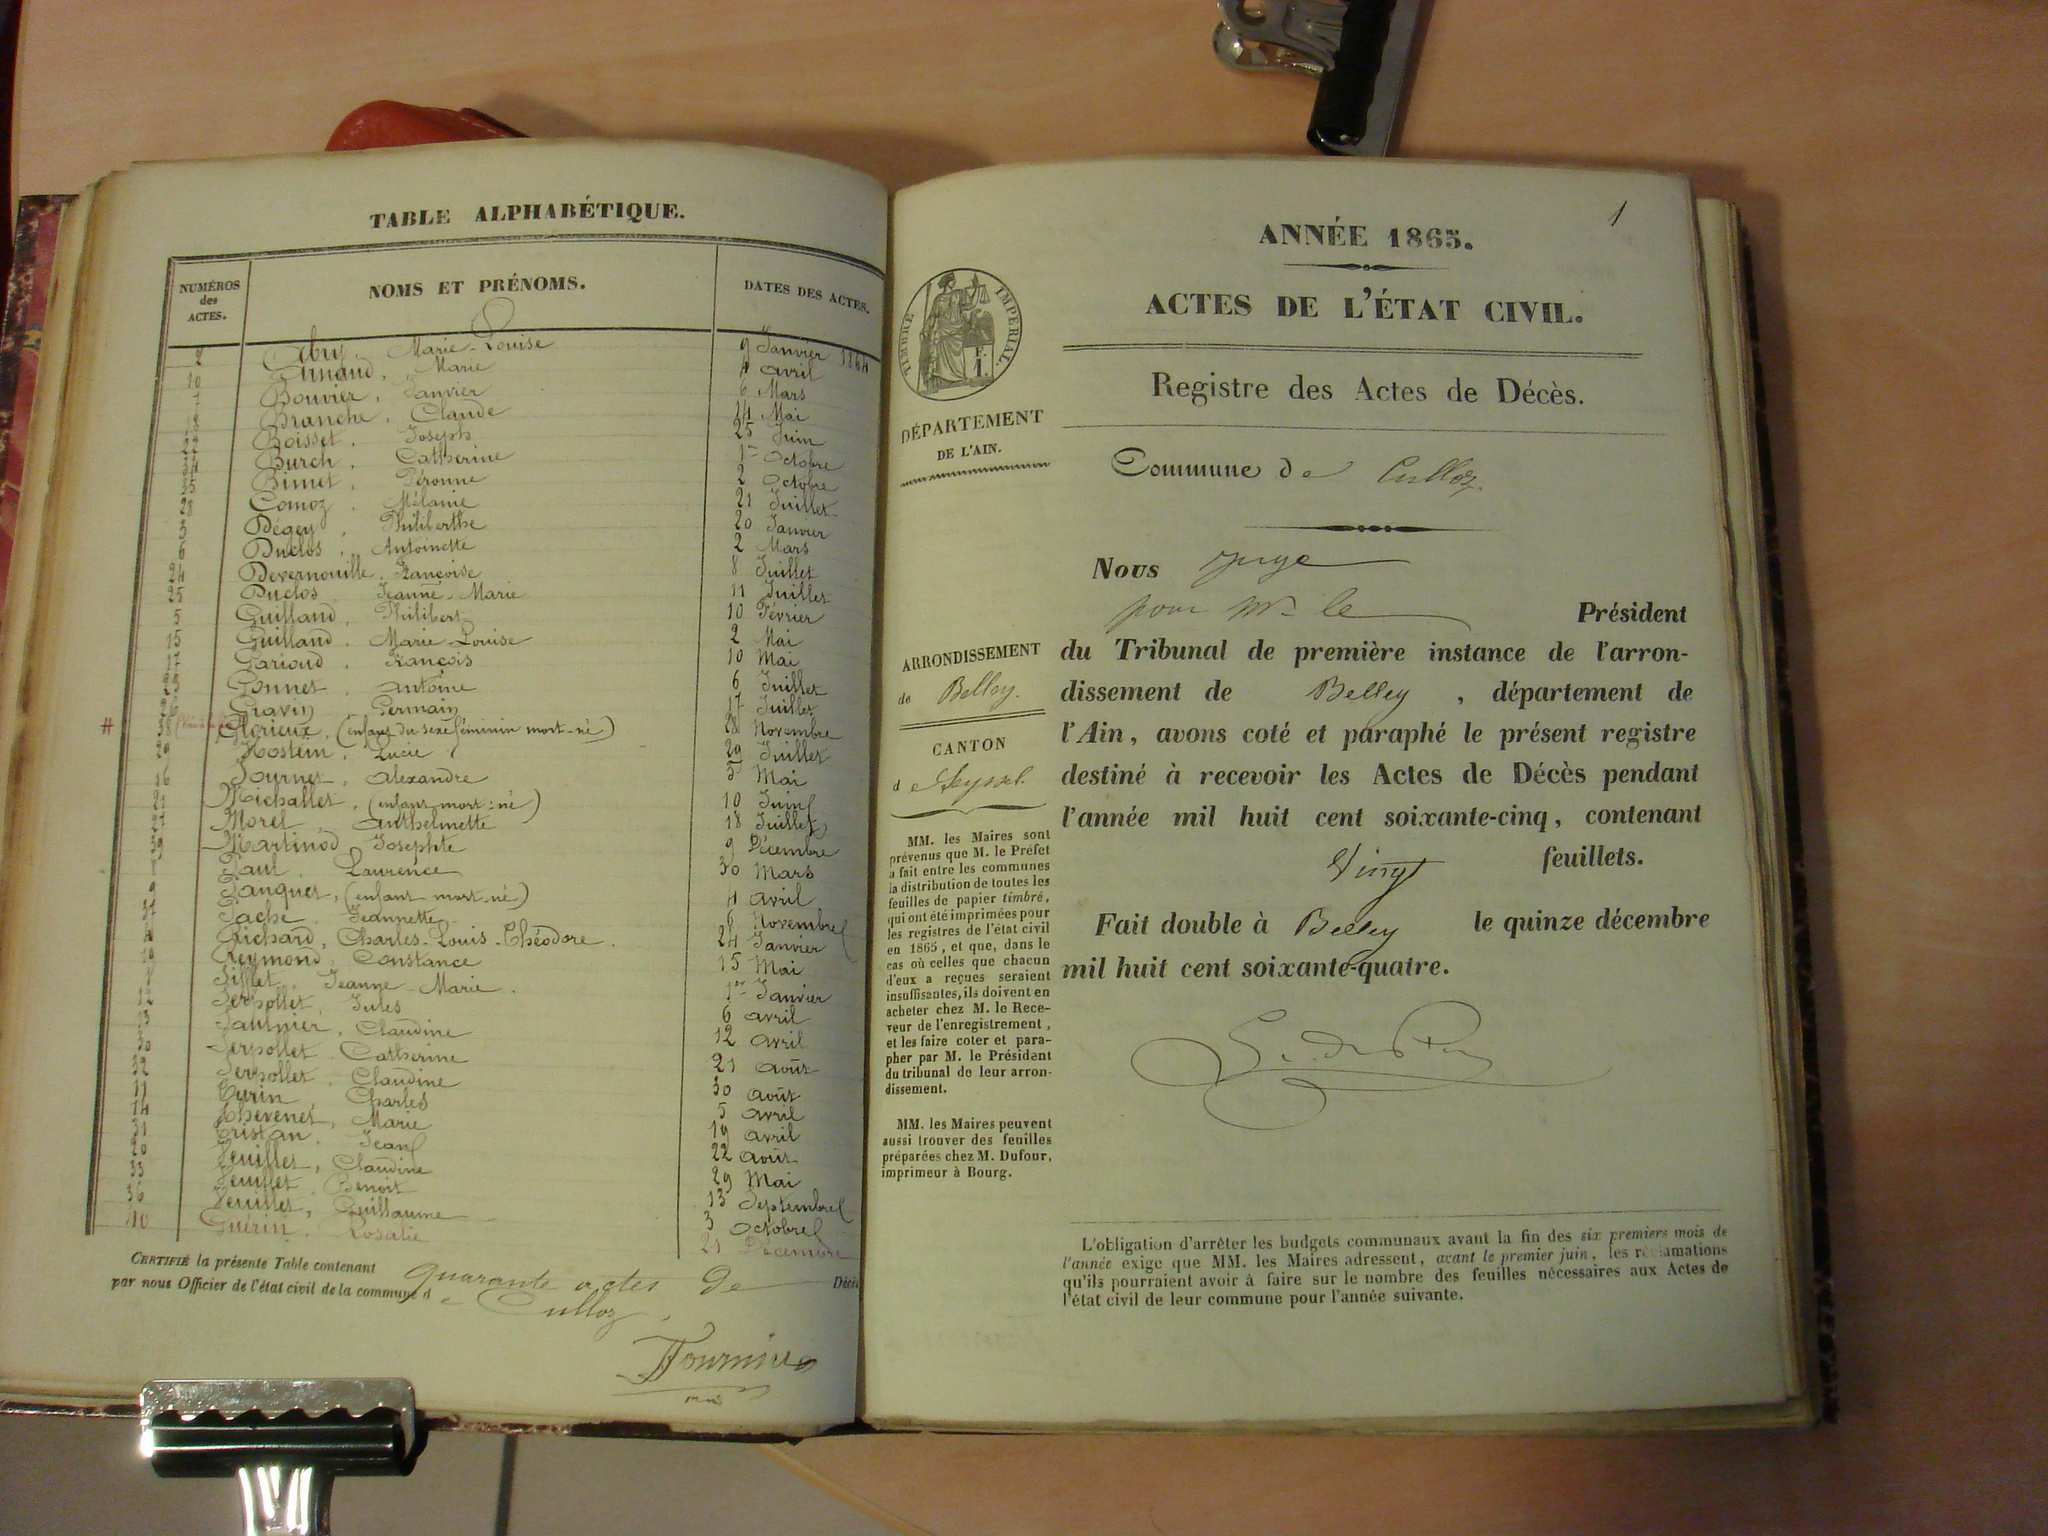 TABLE ALPHABÉTIQUE.
NUMÉROS des ACTES.
NOMS ET PRÉNOMS.
DATES DES ACTES.
2 Marie-Louise 9 Janvier 1864
10 Arnaud, Marie 4 avril
7 Bouvier, Janvier 6 Mars
18 Branche, Claude 14 Mai
22 Boisset, Joseph 25 Juin
34 Burch, Catherine 1er Octobre
35 Bimet, Péronne 2 Octobre
28 Comoz, Mélanie 21 Juillet
3 Dégey, Philiberthe 20 Janvier
6 Duclos, Antoinette 2 Mars
24 Devernouille, Françoise 8 Juillet
25 Duclos, Jeanne-Marie 11 Juillet
5 Guilland, Philibert 10 Février
15 Guilland, Marie-Louise 2 Mai
17 Garioud, François 10 Mai
23 Gonnet, antoine 6 Juillet
26 Gravin, Germain 17 Juillet
# 38 Glorieux, (enfant du sexe féminin mort-né) 28 Novembre
29 Hostein, Lucie 29 Juillet
16 Journet, alexandre 5 Mai
21 Michallet, (enfant mort-né) 10 Juin
27 Morel, anthelmette 18 Juillet
39 Martinod, Josephte 9 Décembre
8 Paul, Laurence 30 Mars
9 Panquet, (enfant mort-né) 4 avril
37 Pache, Jeannette 6 Novembre
4 Richard, Charles-Louis-Théodore. 24 Janvier
19 Reymond, Constance 15 Mai
1 Sifflet, Jeanne-Marie. 1er Janvier
12 Serpollet, Jules 6 avril
13 Saunier, Claudine 12 avril
30 Serpollet, Catherine 21 août
32 Serpollet, Claudine 30 août
11 Turin, Charles 5 avril
14 Thevenet, Marie 19 avril
31 Tristan, Jean 22 août
20 Veuillet, Claudine 29 Mai
33 Veuillet, Benoit 13 Septembre
36 Veuillet, Guillaume 3 Octobre
40 Guérin, Rosalie 21 Décembre
CERTIFIÉ la présente Table contenant quarante actes de Décè
par nous Officier de l'état civil de la commune de Culloz.
Fournier
1
ANNÉE 1865.
ACTES DE L'ÉTAT CIVIL.
TIMBRE IMPÉRIAL.
F.
1.
Registre des Actes de Décès.
DÉPARTEMENT
DE L'AIN.
Commune de Culloz.
Nous juge
pour Mr le Président
du Tribunal de première instance de l'arron-
dissement de Belley, département de
l'Ain, avons coté et paraphé le présent registre
destiné à recevoir les Actes de Décès pendant
l'année mil huit cent soixante-cinq, contenant
Vingt feuillets.
Fait double à Belley le quinze décembre
mil huit cent soixante-quatre.
ARRONDISSEMENT
de Belley.
CANTON
de Seyssel.
MM. les Maires sont
prévenus que M. le Préfet
a fait entre les communes
la distribution de toutes les
feuilles de papier timbré,
qui ont été imprimées pour
les registres de l'état civil
en 1865, et que, dans le
cas où celles que chacun
d'eux a reçues seraient
insuffisantes, ils doivent en
acheter chez M. le Rece-
veur de l'enregistrement,
et les faire coter et para-
pher par M. le Président
du tribunal de leur arron-
dissement.
MM. les Maires peuvent
aussi trouver des feuilles
préparées chez M. Dufour,
imprimeur à Bourg.
L'obligation d'arrêter les budgets communaux avant la fin des six premiers mois de
l'année exige que MM. les Maires adressent, avant le premier juin, les réclamations
qu'ils pourraient avoir à faire sur le nombre des feuilles nécessaires aux Actes de
l'état civil de leur commune pour l'année suivante.